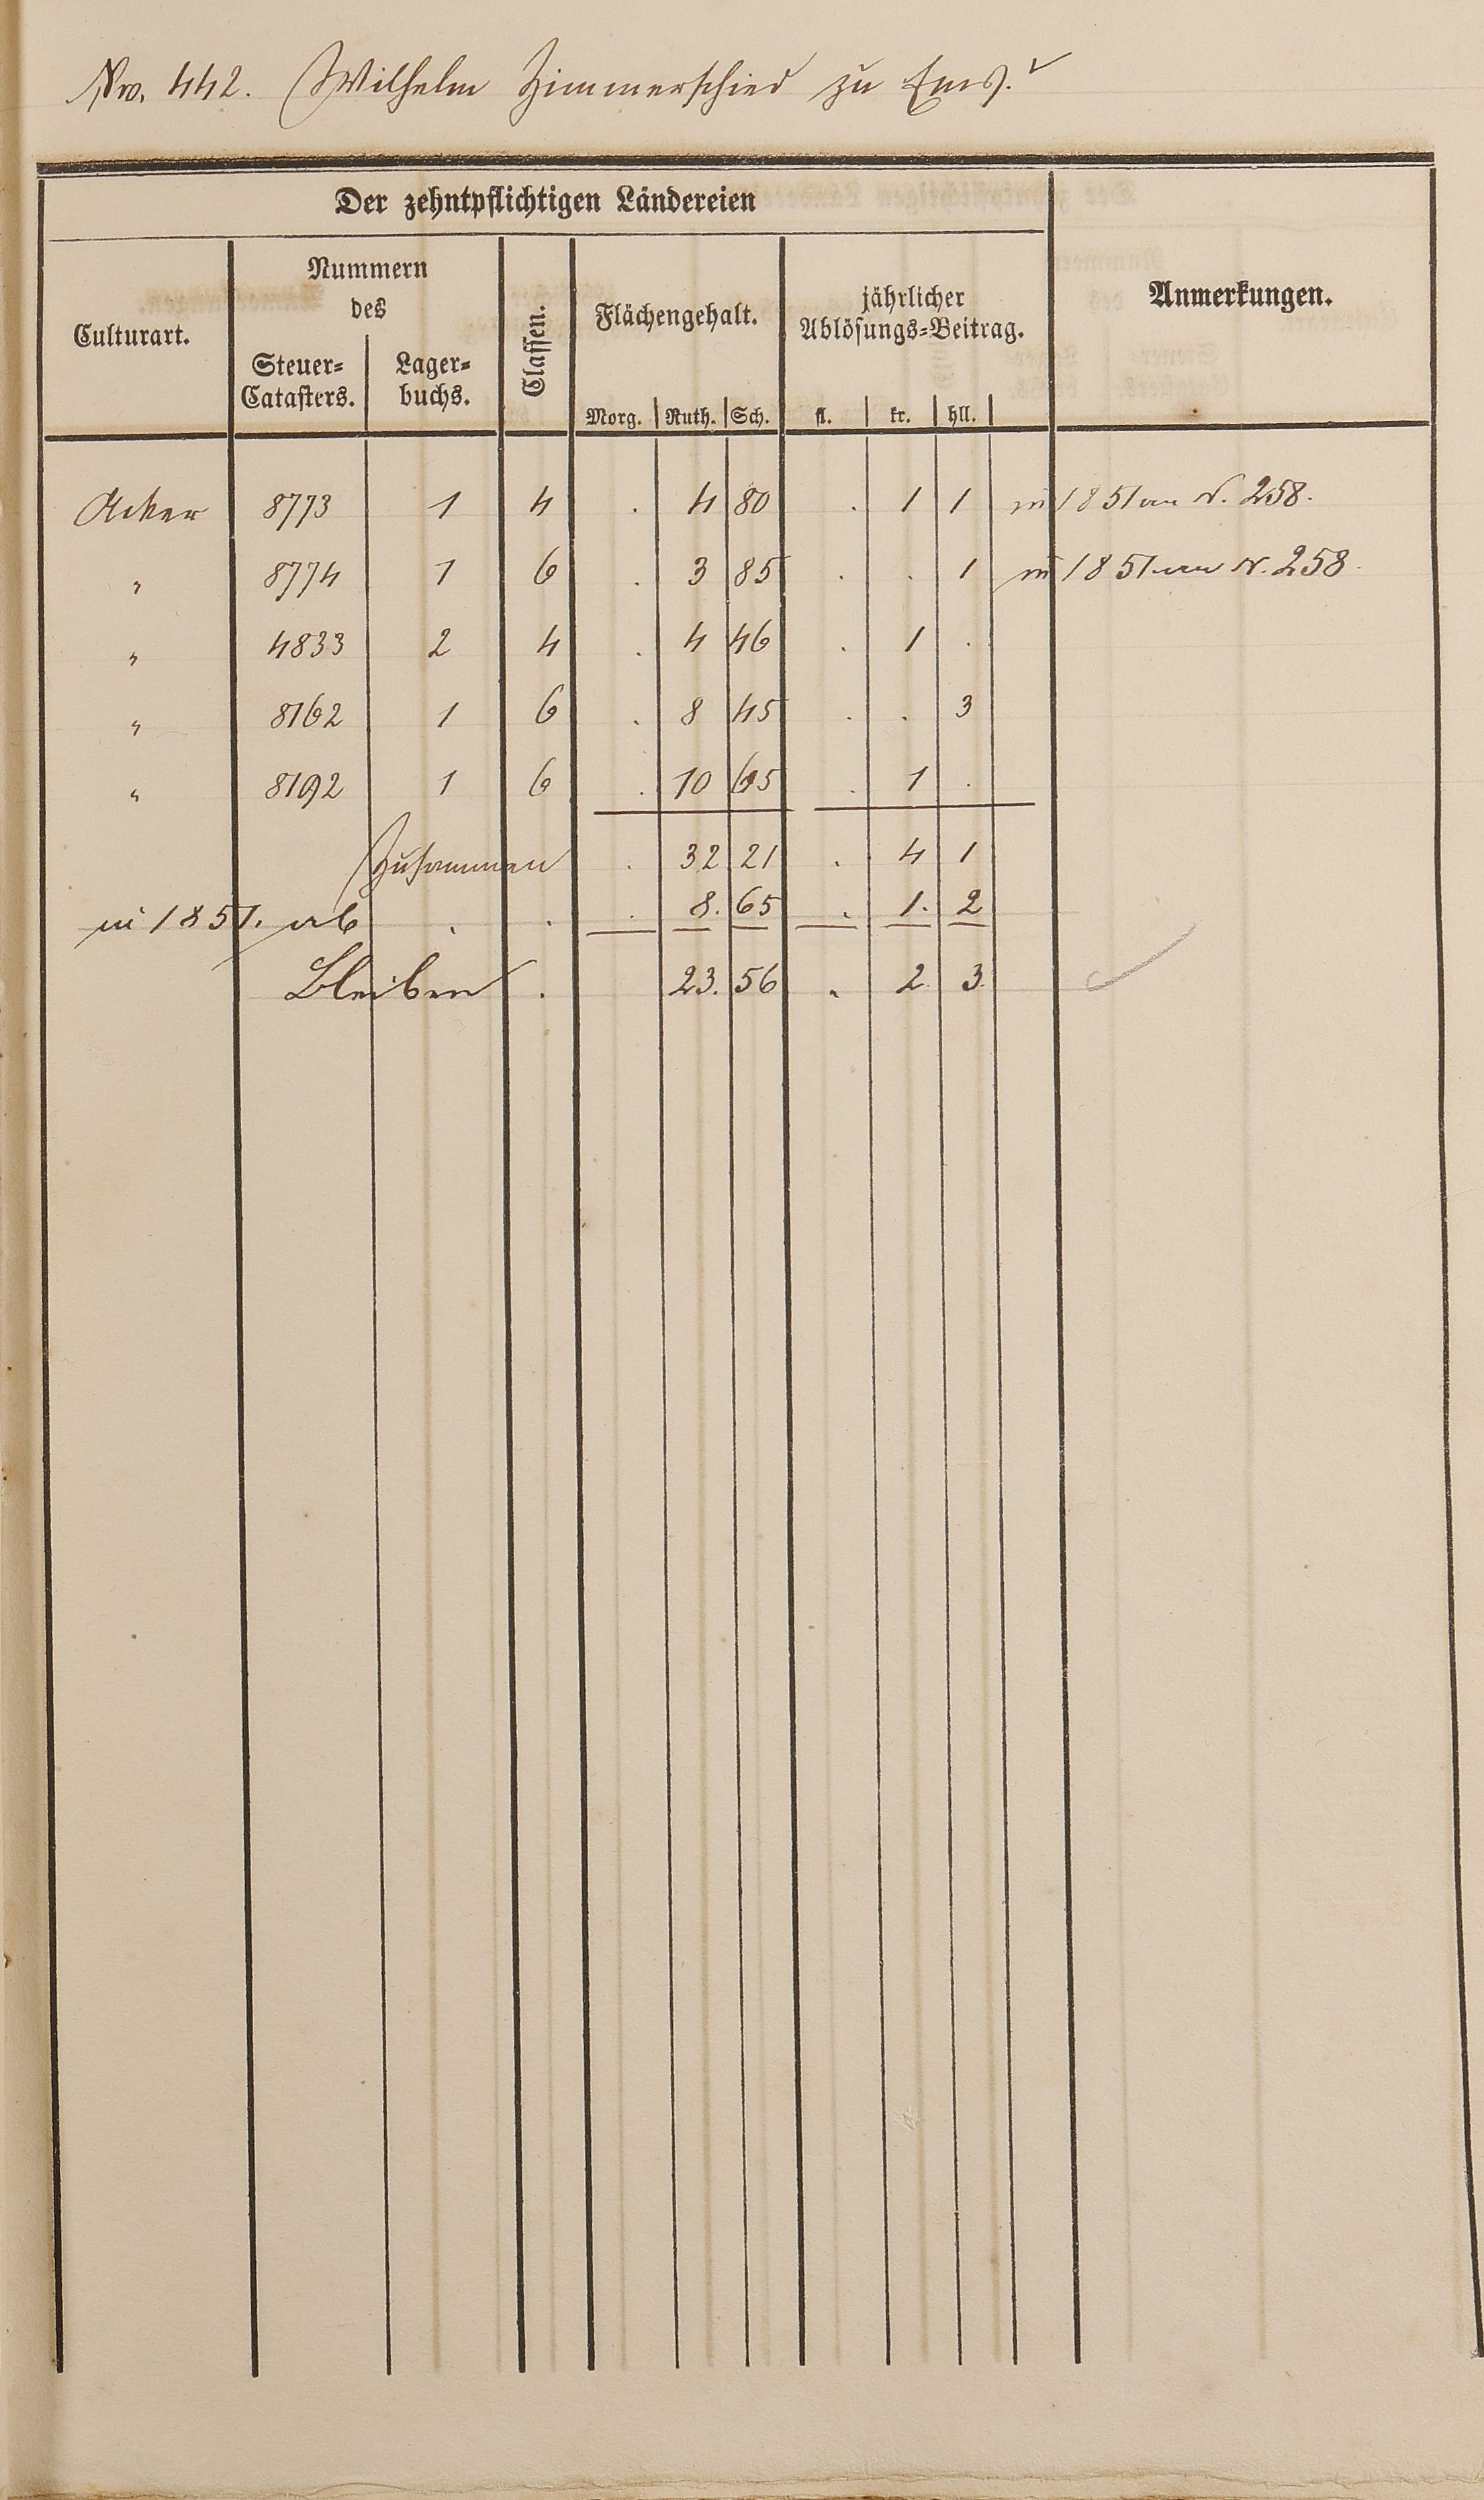 Nro. 442. Wilhelm Zimmerschied zu Ems.
Der zehntpflichtigen Ländereien
Culturart.
Nummern
des
Steuer-
Catasters.
Lager-
buchs.
Classen.
Flächengehalt.
Morg. Ruth. Sch.
jährlicher
Ablösungs-Beitrag.
fl. kr. hll.
Anmerkungen.
Acker 8773 1 4 . 4 80 . 1 1 in 1851 an N. 258.
" 8774 1 6 . 3 85 . . 1 in 1851 an N. 258.
" 4833 2 4 . 4 46 . 1 .
" 8162 1 6 . 8 45 . . 3
" 8192 1 6 . 10 65 . 1 .
Zusammen . 32 21 . 4 1
in 1851. ab . . . 8. 65 . 1. 2
Bleiben . 23. 56 . 2. 3.